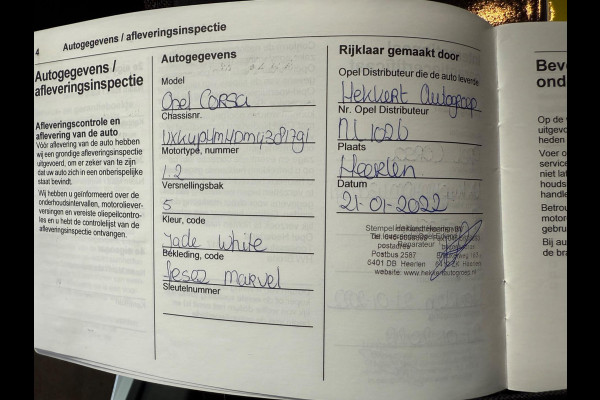 4 Autogegevens / afleveringsinspectie
Autogegevens /
afleveringsinspectie
Afleveringscontrole en
aflevering van de auto
Vóór aflevering van de auto hebben
wij een grondige afleveringsinspectie
uitgevoerd, om er zeker van te zijn
dat uw auto zich in een onberispelijke
staat bevindt.
Wij hebben u geïnformeerd over de
onderhoudsintervallen, motoroliever-
versingen en vereiste oliepeilcontro-
les en u hebt de controlelijst van de
afleveringsinspectie ontvangen.
Autogegevens
Model
Opel Corsa
Chassisnr.
Motortype, nummer
1.2
Versnellingsbak
5
Kleur, code
Jade White
Bekleding, code
marvel
Sleutelnummer
Rijklaar gemaakt door
Opel Distributeur die de auto leverde
Hekkert Autogroep
Nr. Opel Distributeur
NL 1026
Plaats
Heerlen
Datum
21-01-2022
Stempel
Reparateur
postadres
Postbus 2587
6401 DB Heerlen
website: www.hekkertautogroep.nl
Bev
ond
Op de
uitgevo
heden
Voer o
service
niet lat
houds
handl
Betrou
motor
gebru
Bij au
de bra